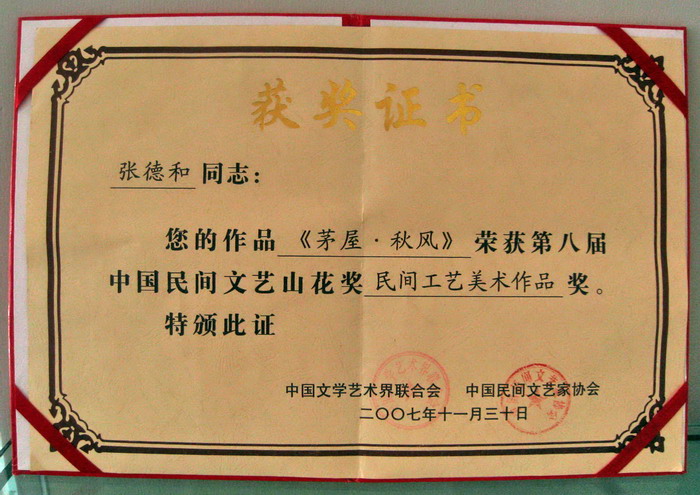 获奖证书
张德和同志：
您的作品《茅屋·秋风》荣获第八届
中国民间文艺山花奖民间工艺美术作品奖。
特颁此证
中国文学艺术界联合会 中国民间文艺家协会
二〇〇七年十一月三十日